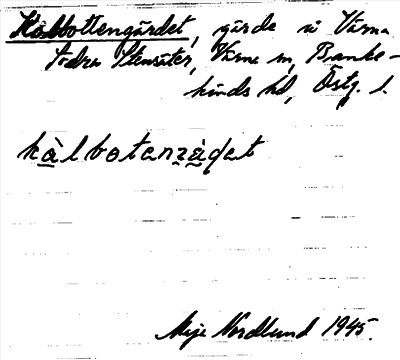 Kålbottengärdet, gärde u Värna
Södra Stensäter, Värna sn, Banke-
kinds hd, Östg. l.
kålbotenʒädet
Maja Nordlund 1945.